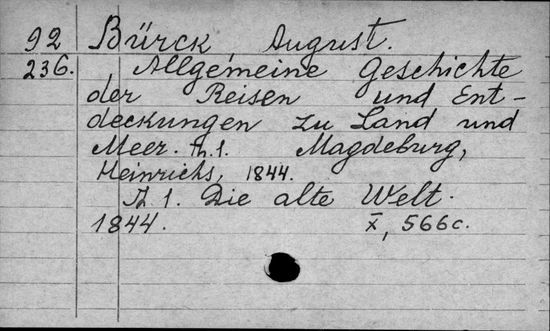 92 Bürck, August.
236. Allgemeine Geschichte
der Reisen und Ent-
deckungen zu Land und
Meer. Th. 1. Magdeburg,
Heinrichs, 1844.
1. Die alte Welt.
1844. X, 566c.